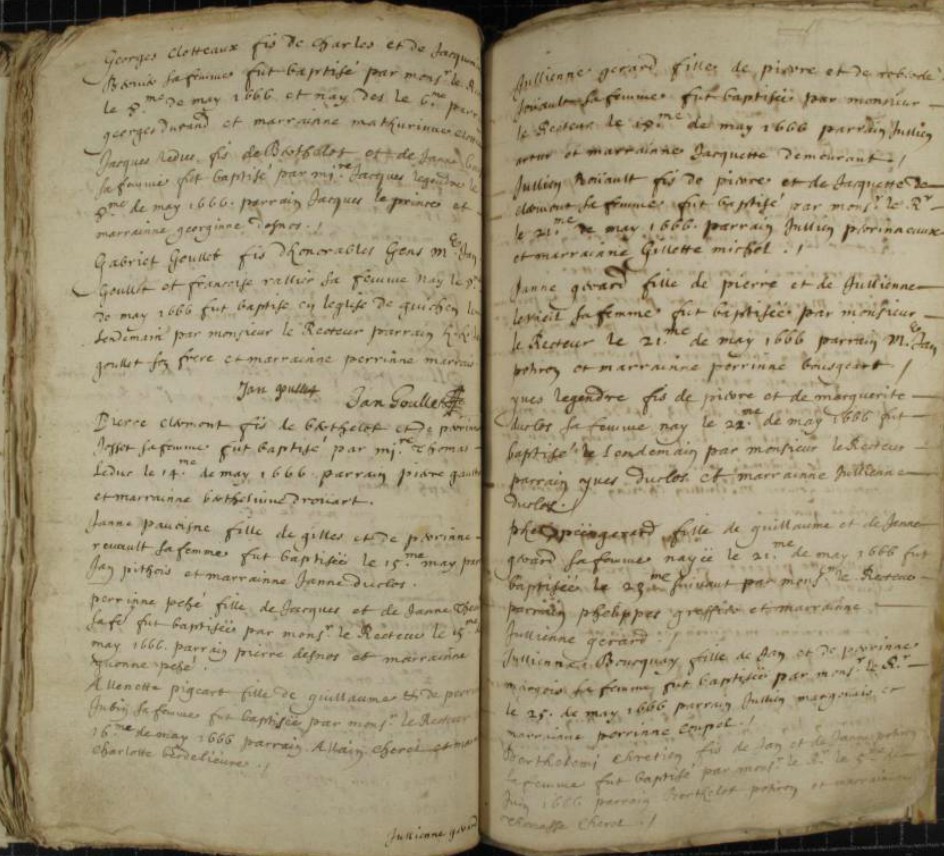 Georges Clotteaux fis de Charles et de Jacquin
sa femme fut baptisé par monsr le
le 8me de may 1666 et nay des le 6me parr
georges durand et marrainne mathurinne
Jacques Leduc fis de Berthelot et de Janne
sa femme fut baptisé par mire Jacques legendre le
8me de may 1666. parrain Jacques le prince et
marrainne georginne desnos ./
Gabriel Goullet fis d'honorables Gens Me Jan
Goullet et francoise rallier sa femme nay le
de may 1666 fut baptise en leglise de guichen le
lendemain par monsieur le Recteur parrain
goullet son frere et marrainne perrinne
Jan goullet Jan Goullet
Pierre clemont fis de berthelot et de perrin
Josset sa femme fut baptisé par mire Thomas
Leduc le 14me de may 1666 parrain piere
et marrainne berthelinne drouart.
Janne pavoisne fille de gilles et de perrinne
revault sa femme fut baptisée le 15me may par
Jan pithois et marrainne Janne duclos.
perrinne pehé fille de Jacques et de Janne
sa fe fut baptisée par monsr le Recteur le 15me
may 1666. parrain pierre desnos et marrainne
yvonne pehé.
Allenette pigeart fille de guillaume & de perri
Jubin sa femme fut baptisée par monsr le Recteur
16me de may 1666 parrain Allain cherel et mar
charlotte berdelievre ./
Jullienne gerard
Jullienne gerard fille de pierre et de
Jouault sa femme fut baptisée par monsieur
le Recteur le 18me de may 1666 parrain Jullien
et marrainne Jacquette demourant ./
Jullien Rouault fis de pierre et de Jacquette de
clemont sa femme fut baptisé par monsr le Rr
le 21me de may 1666. parrain Jullien perrinneaux
et marrainne Gillette michel ./
Janne gerard fille de pierre et de Jullienne
sa femme fut baptisée par monsieur
le Recteur le 21me de may 1666 parrain Me Jan
potron et marrainne perrinne bousgeart /
yves legendre fis de pierre et de marguerite
duclos sa femme nay le 22me de may 1666 fut
baptisé le londemain par monsieur le Recteur
parrain yves duclos et marrainne Jullienne
duclos./
gerard fille de guillaume et de Janne
gerard sa femme nayée le 21me de may 1666 fut
baptisée le 23me suivant par monsr le Recteur
parrain phelippes greffier et marrainne
Jullienne gerard
Jullienne Bourquay fille de Jan et de perrinne
sa femme fut baptisée par monsr le Rr
le 25. de may 1666 parrain Jullien margouais et
marrainne perrinne coupel ./
Berthelemi chretien fis de Jan et de Janne potron
sa femme fut baptisé par monsr le Rr le
Juin 1666 parrain Berthelot potron et marrainne
Thomasse cherel ./